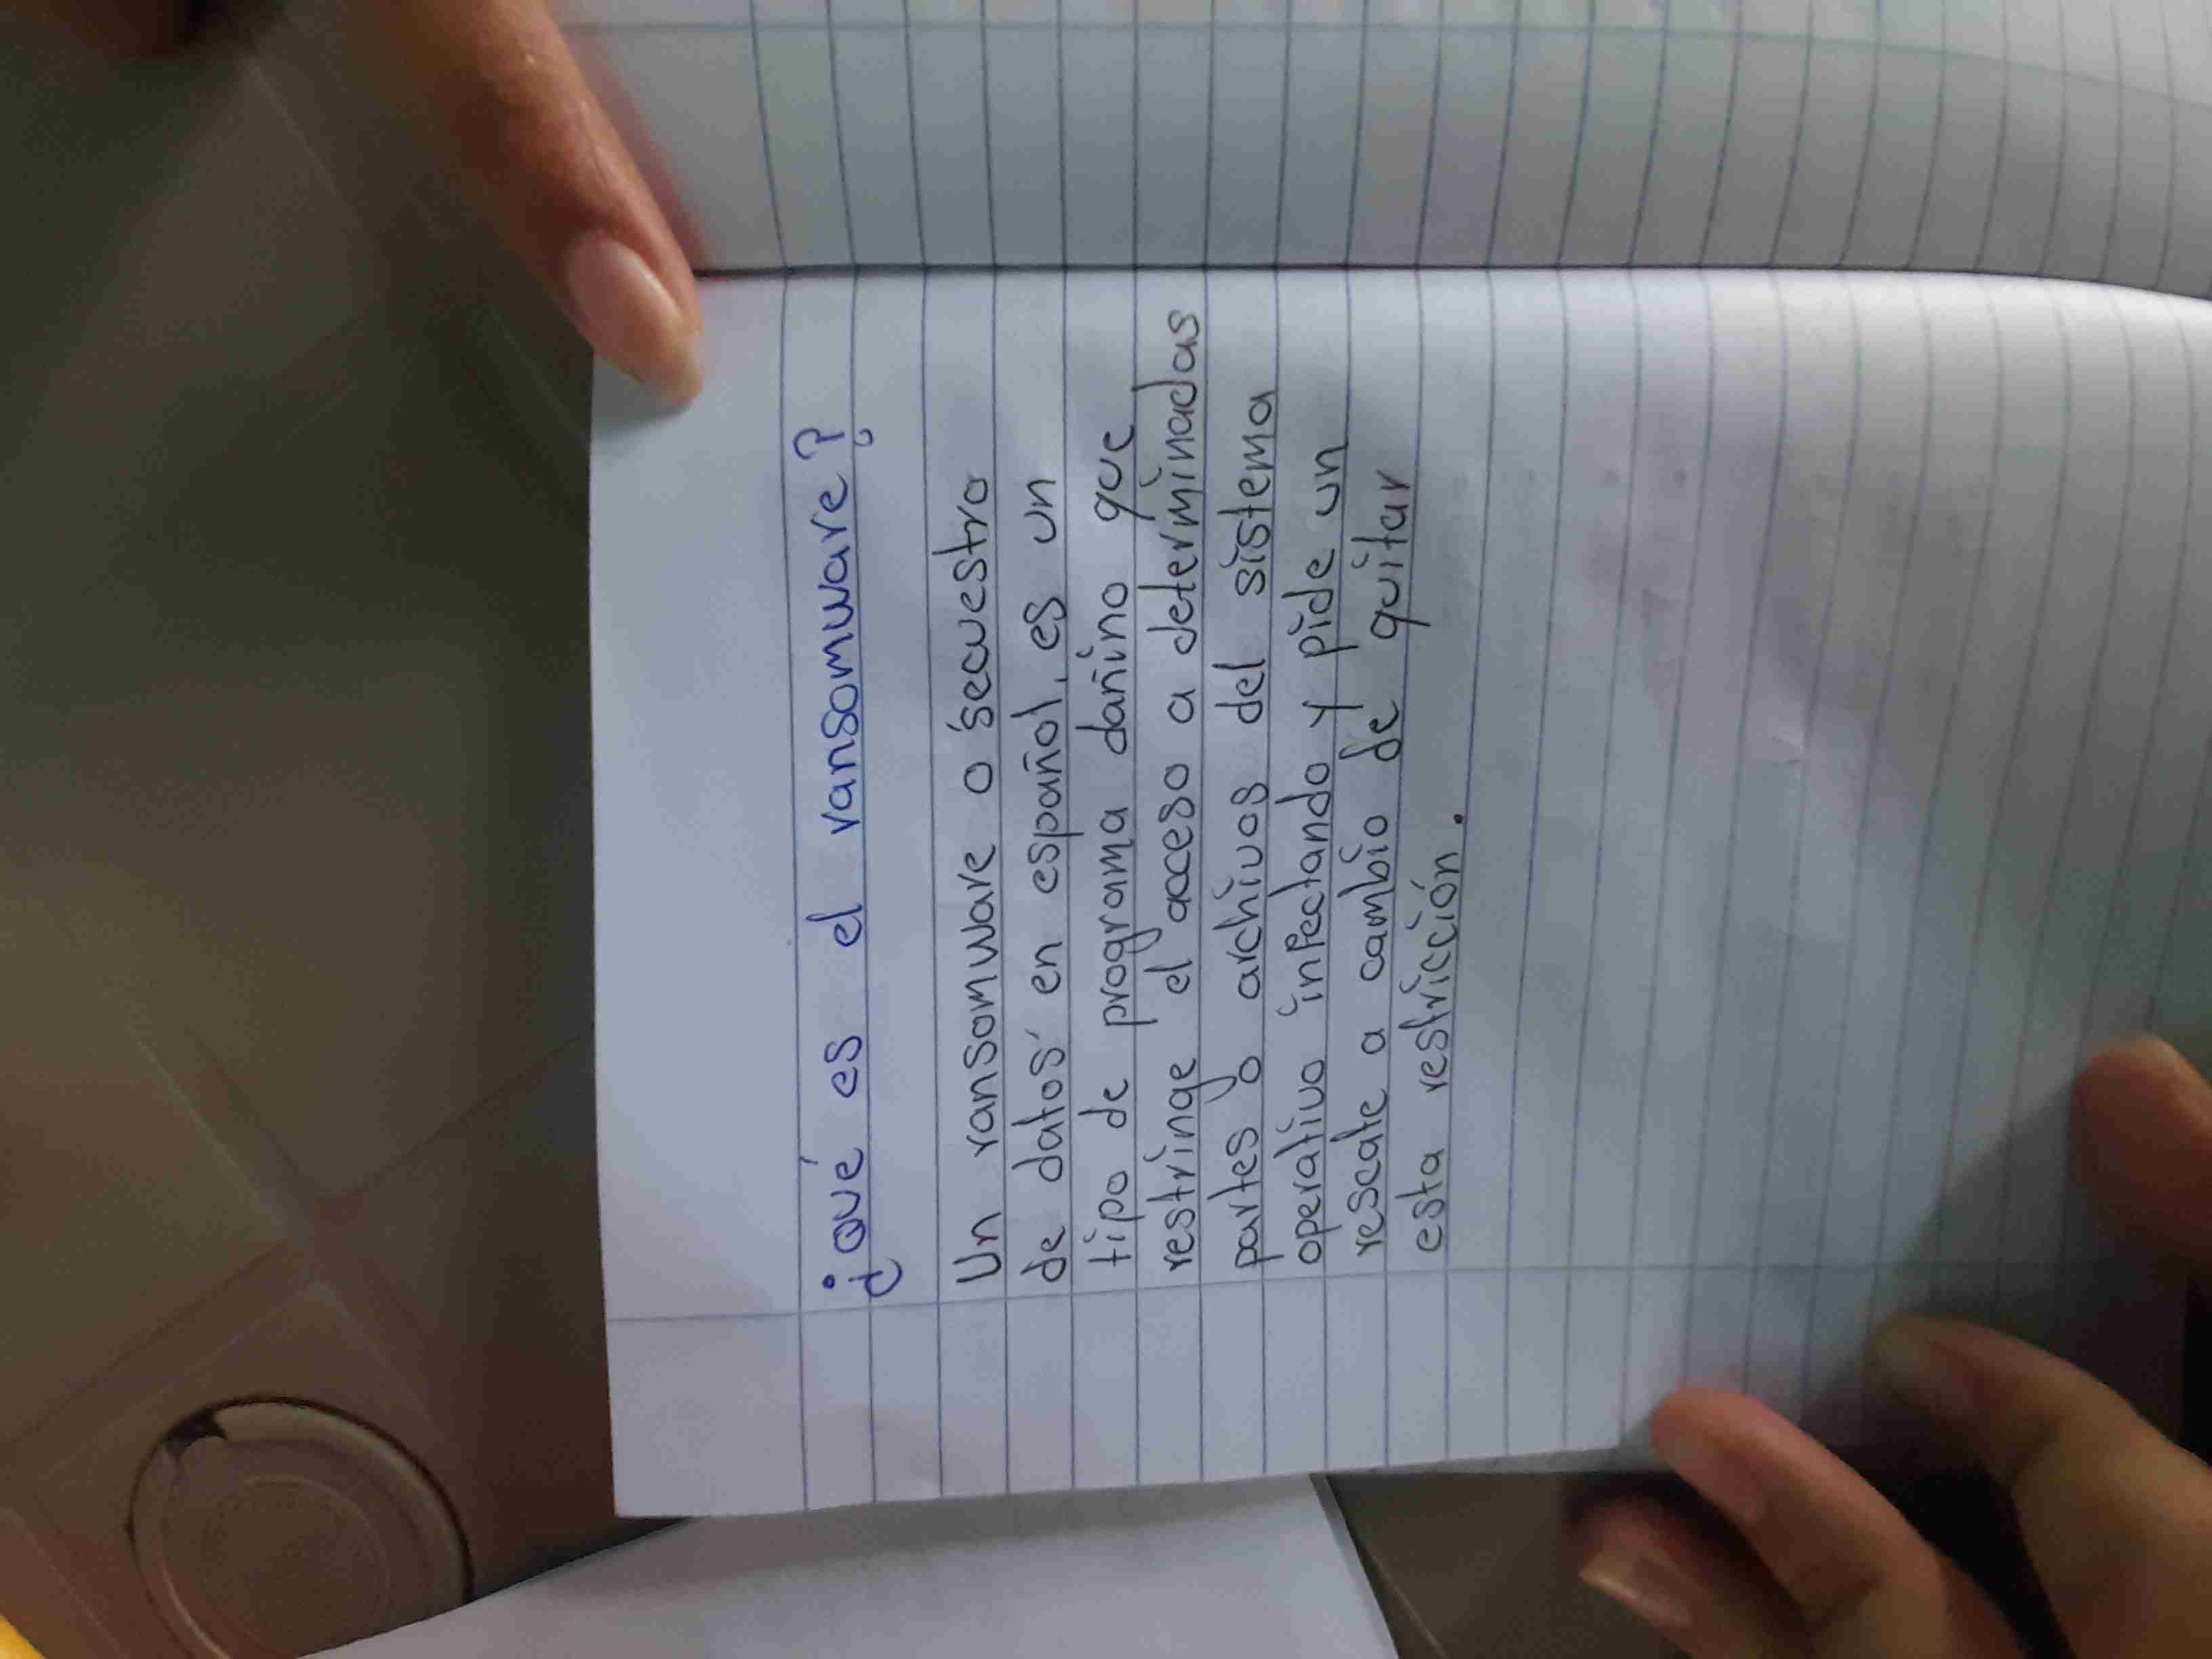 ¿qué es el ransomware?
Un ransomware o 'secuestro
de datos' en español, es un
tipo de programa dañino que
restringe el acceso a determinadas
partes o archivos del sistema
operativo infectando y pide un
rescate a cambio de quitar
esta restricción.